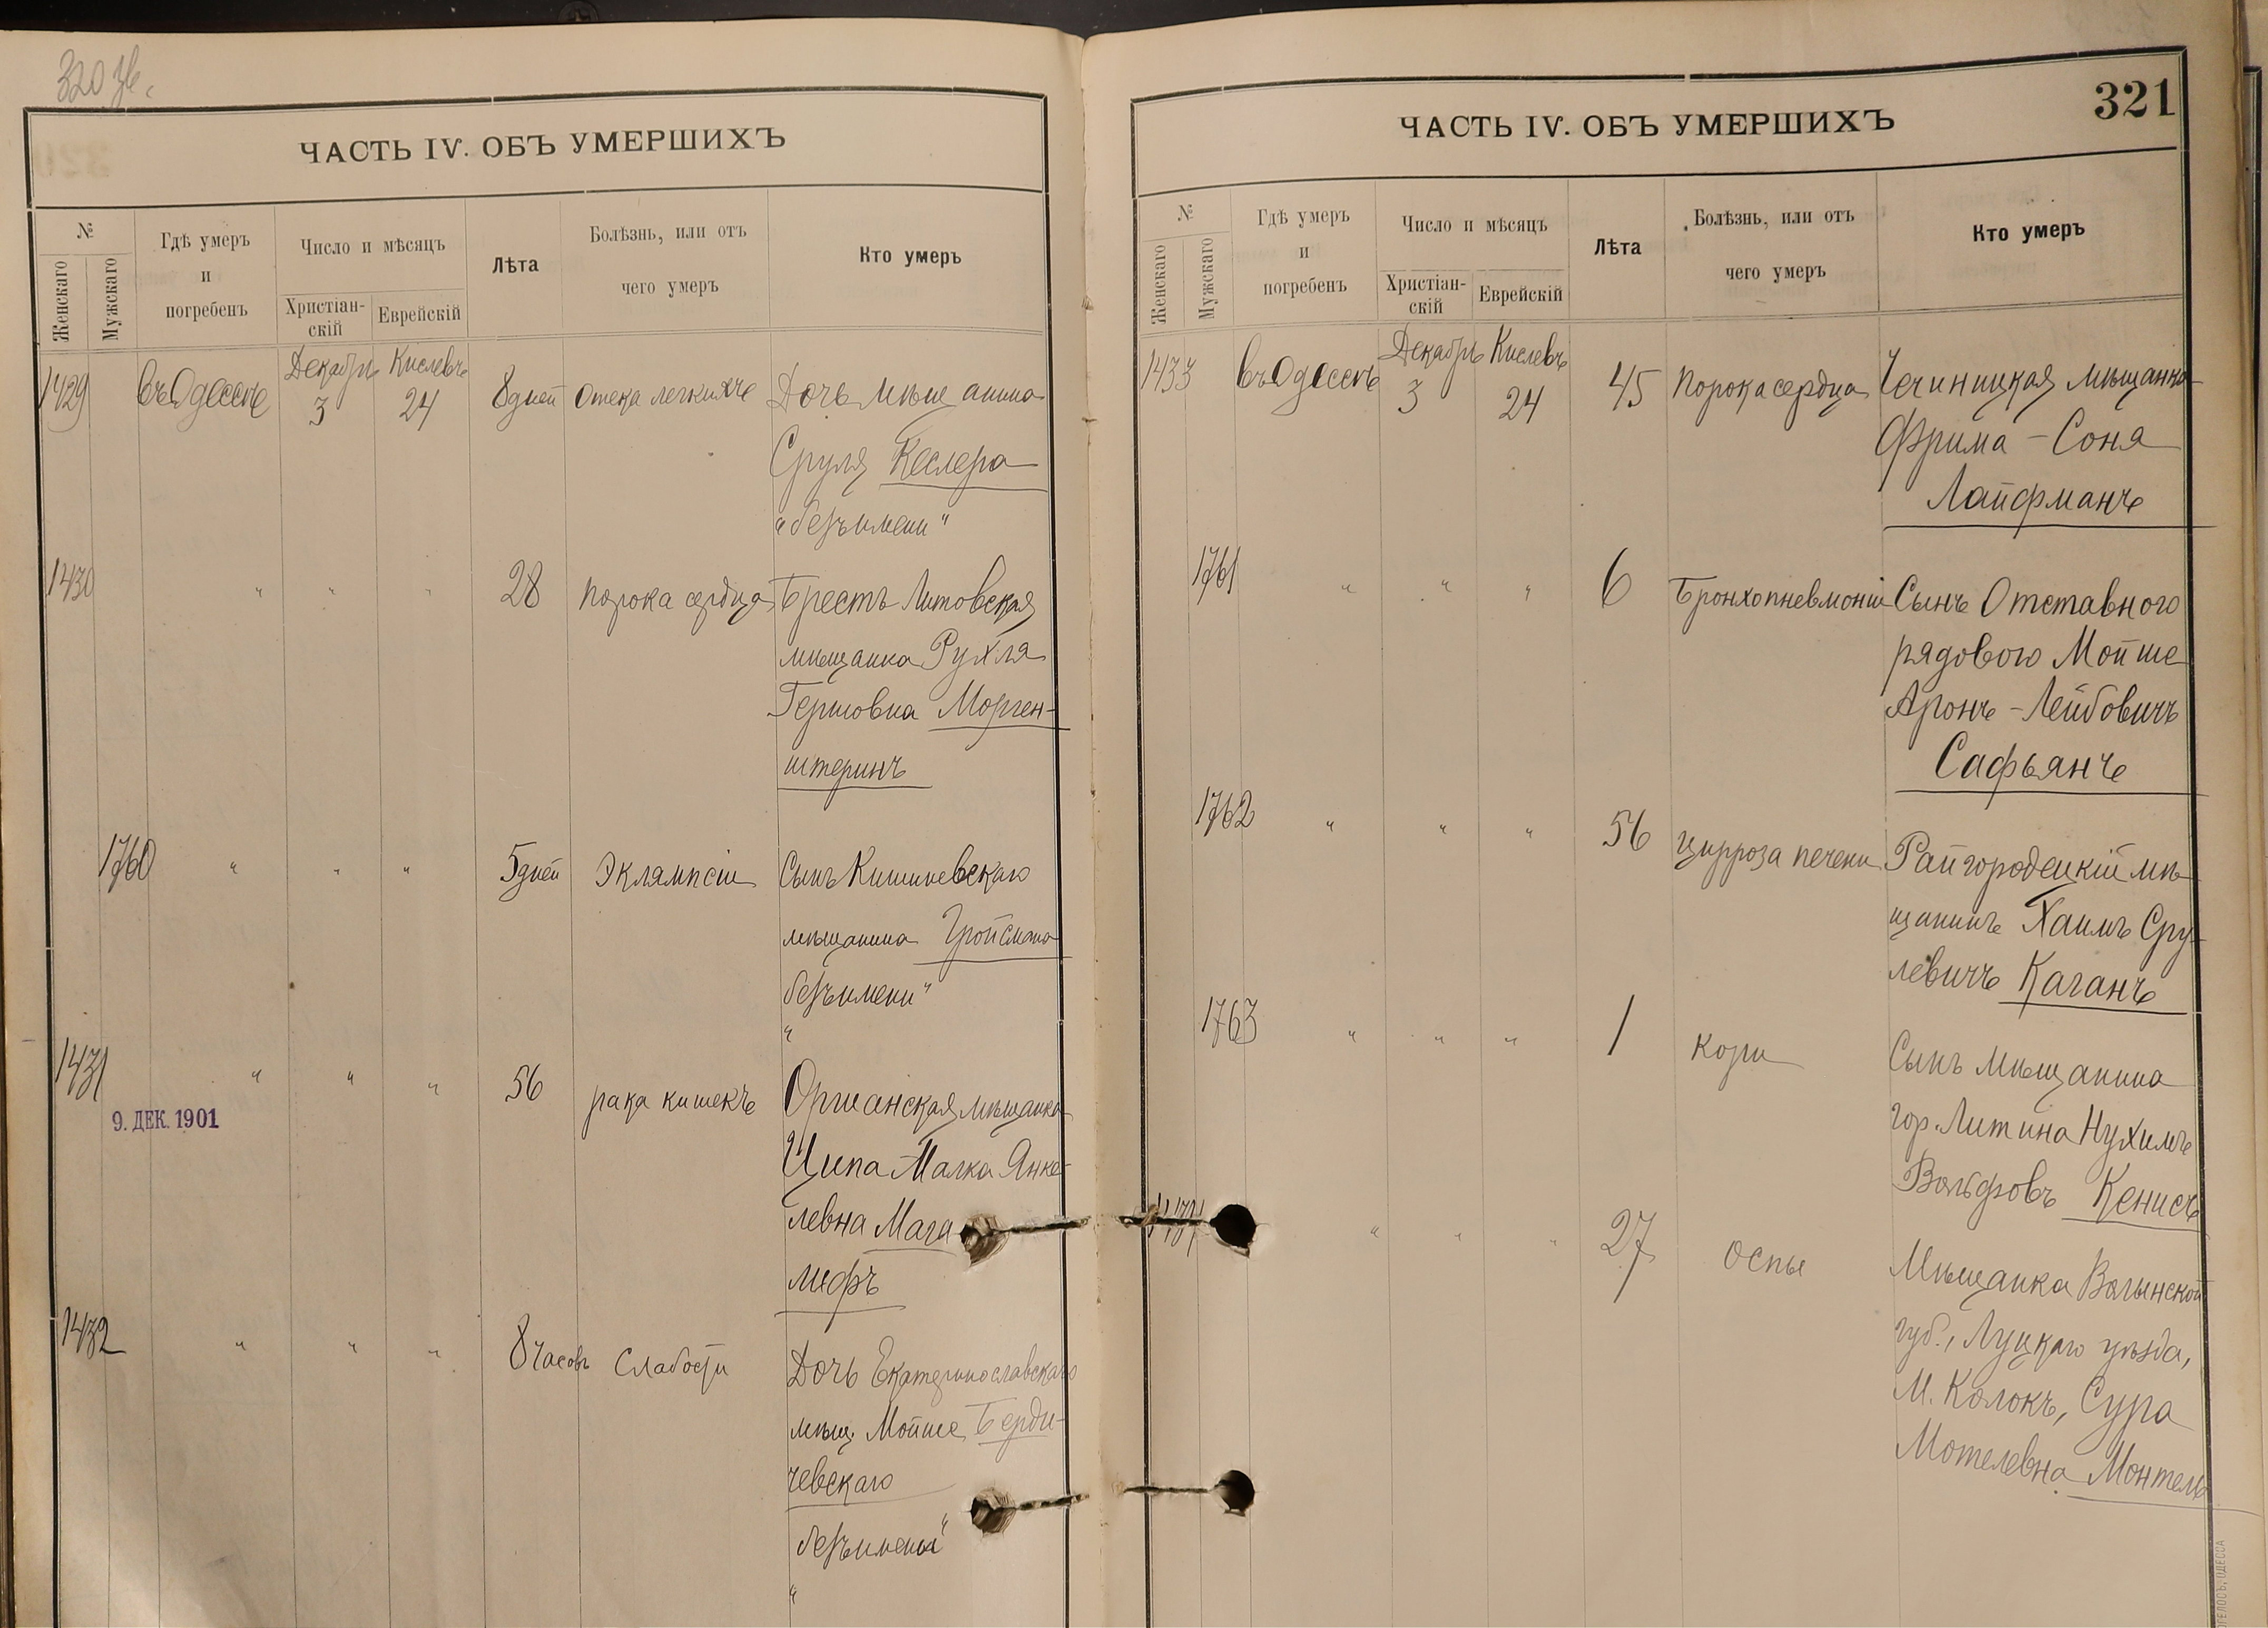 320 зв.
ЧАСТЬ IV. ОБЪ УМЕРШИХЪ
№
Женскаго
Мужскаго
Гдѣ умеръ
и
погребенъ
Число и мѣсяцъ
Христіан-
скій
Еврейскій
Лѣта
Болѣзнь, или отъ
чего умеръ
Кто умеръ
1429 въ Одессѣ Декабрь 3 Кислевъ 24 8 дней Отека легкихъ Дочь мѣщанина
Сруля Кеслера
„безъ имени“
1430 „ „ „ 28 Порока сердца Брестъ Литовская
мѣщанка Рухля
Гершовна Морген-
штернъ
1760 „ „ „ 5 дней Эклямпсіи Сынъ Кишиневскаго
мѣщанина Гройсмана
безъ имени“
„
1431 „ „ „ 56 рака кишекъ Оршанская мѣщанка
9. ДЕК. 1901
Ципа Малка Янке-
левна Мага
лифъ
1432 „ „ „ 8 часовъ Слабости Дочь Екатеринославскаго
мѣщ. Мойше Берди-
чевскаго
безъ имени“
„
321
ЧАСТЬ IV. ОБЪ УМЕРШИХЪ
№
Женскаго
Мужскаго
Гдѣ умеръ
и
погребенъ
Число и мѣсяцъ
Христіан-
скій
Еврейскій
Лѣта
Болѣзнь, или отъ
чего умеръ
Кто умеръ
1433 въ Одессѣ Декабрь 3 Кислевъ 24 45 Порока сердца мѣщанка
Фрима-Соня
Лайфманъ
1761 „ „ „ 6 Бронхопневмоніи Сынъ Отставного
рядового Мойше
Аронъ-Лейбовичъ
Сафьянъ
1762 „ „ „ 56 Цирроза печени Райгородецкій мѣ-
щанинъ Хаимъ Сру-
левичъ Каганъ
1763 „ „ „ 1 Кори Сынъ мѣщанина
гор. Литина Нухимъ
Вольфовъ Кенисъ
„ „ „ 27 Оспы Мѣщанка Волынской
губ., Луцкаго уѣзда,
М. Колокъ, Сура
Мотелевна Монтель